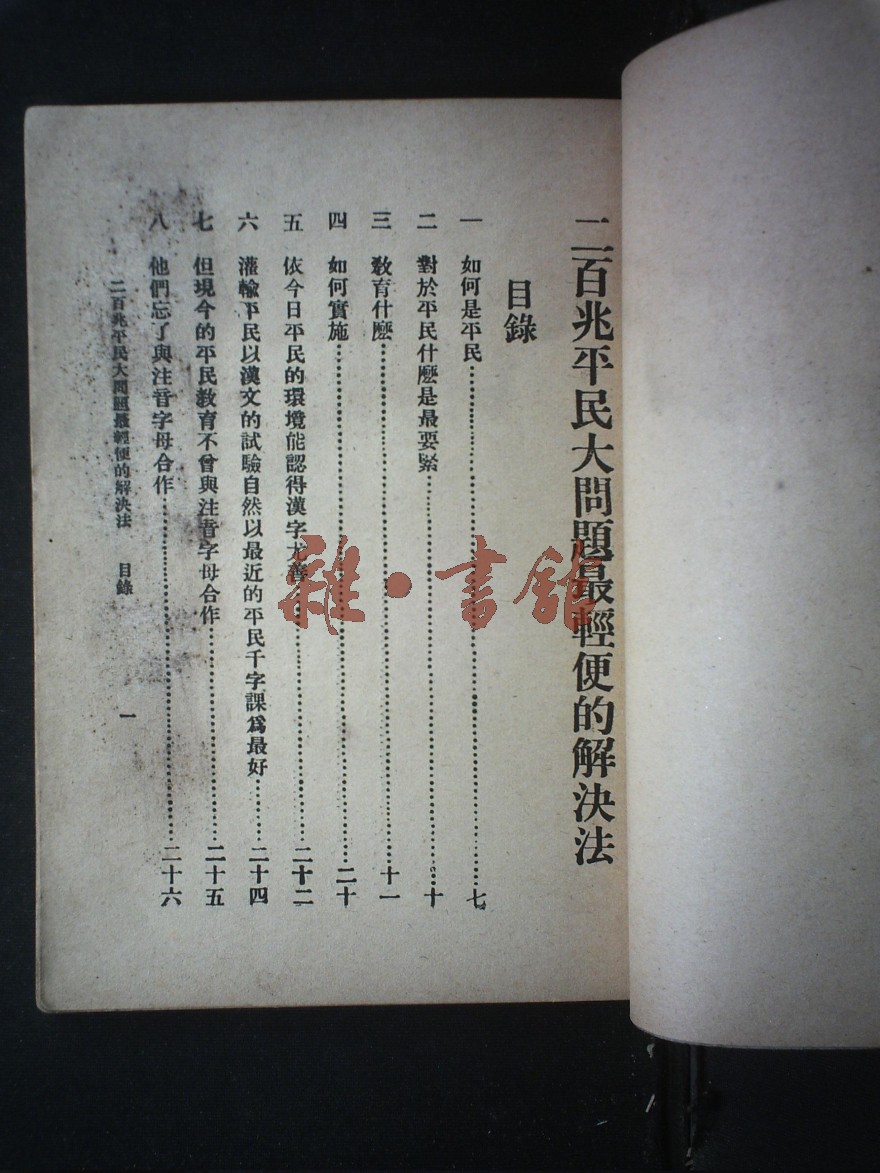 二百兆平民大問題最輕便的解決法
目錄
一 如何是平民……七
二 對於平民什麽是最要緊……十
三 敎育什麽……十一
四 如何實施……二十
五 依今日平民的環境能認得漢字尤善……二十二
六 灌輸平民以漢文的試驗自然以最近的平民千字課爲最好……二十四
七 但現今的平民敎育不曾與注音字母合作……二十五
八 他們忘了與注音字母合作……二十六
二百兆平民大問題最輕便的解決法 目錄 一
雜·書館